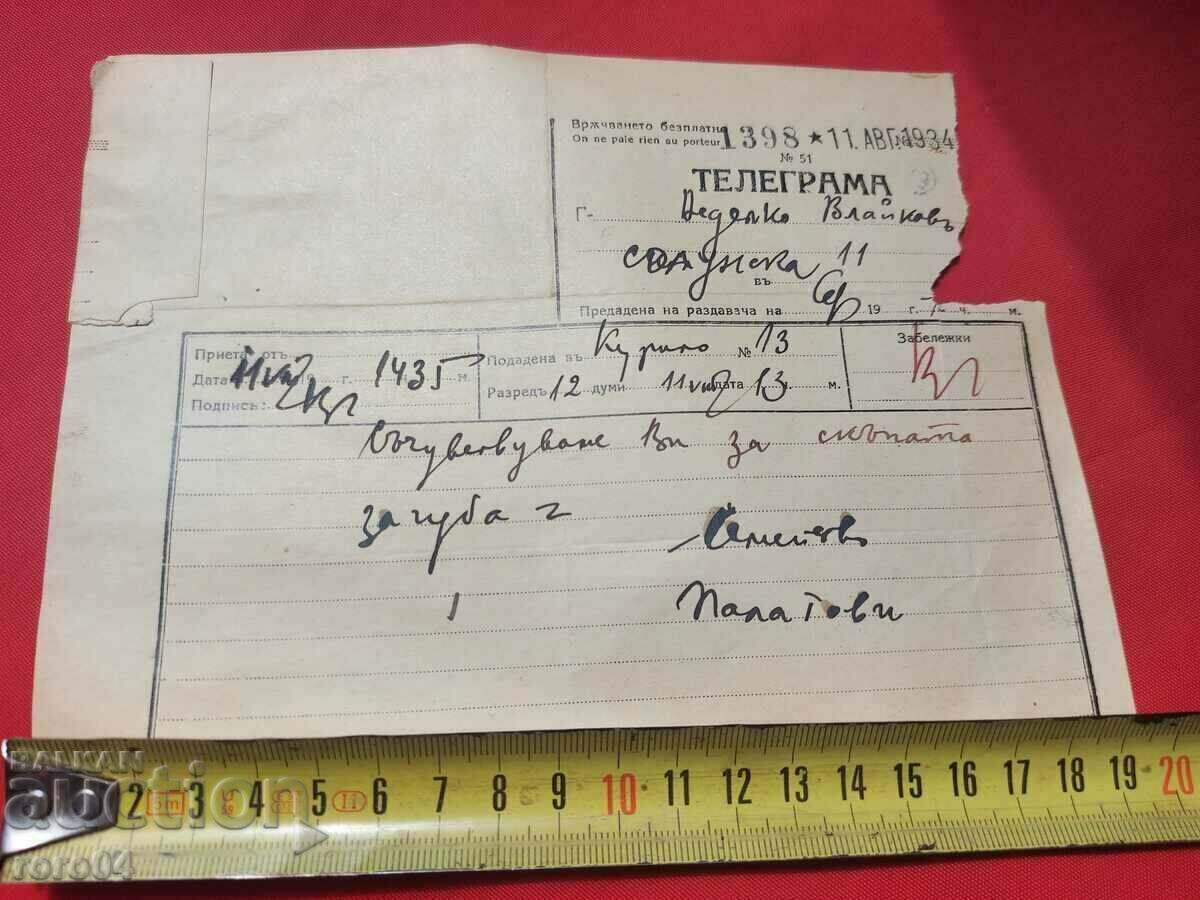 Врѫчването безплатно
On ne paie rien au porteur
1398 * 11. АВГ. 1934
№ 51
ТЕЛЕГРАМА
Г- Неделко Влайковъ
Солунска 11
въ Сф
Предадена на раздавача на 19 г. ч. м.
Приета отъ
Дата 11 VIII 19 г. 1435 м.
Подпись:
Подадена въ Курило № 13
Разредъ 12 думи 11 VIII дата 13 ч. м.
Забележки
Съчувствуваме Ви за скъпата
загуба
Семейство
Палатови
BALKAN
auction
roro04
2 3 4 5 6 7 8 9 10 11 12 13 14 15 16 17 18 19 20
5m II